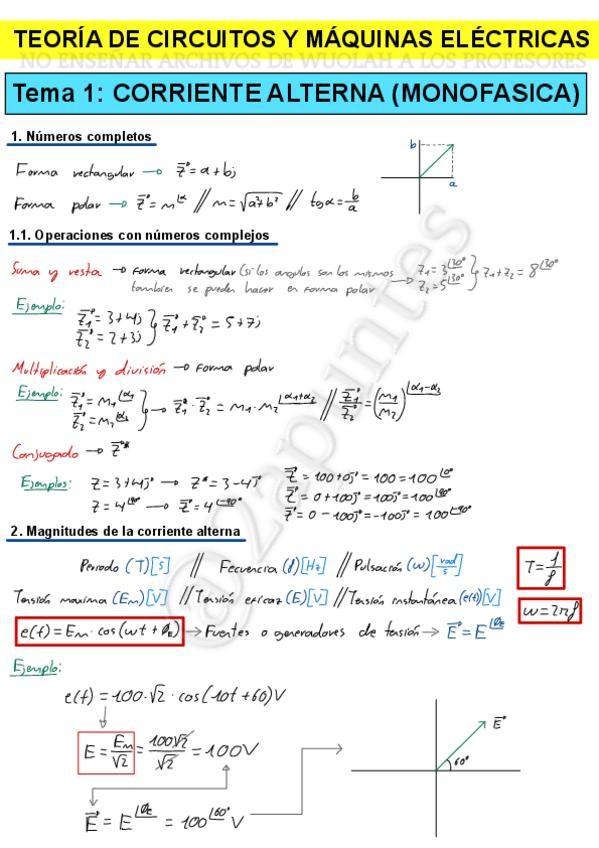 TEORÍA DE CIRCUITOS Y MÁQUINAS ELÉCTRICAS
NO ENSEÑAR ARCHIVOS DE WUOLAH A LOS PROFESORES
Tema 1: CORRIENTE ALTERNA (MONOFASICA)
1. Números completos
Forma rectangular → Z⃗ = a + bj
Forma polar → Z⃗ = m∠α // m = √(a²+b²) // tgα = b/a
b
a
1.1. Operaciones con números complejos
Suma y resta → Forma rectangular (si los angulos son los mismos
tambien se pueden hacer en forma polar → Z₁ = 3∠30° Z₂ = 5∠30° } Z₁ + Z₂ = 8∠30°
Ejemplo:
Z₁⃗ = 3 + 4j
Z₂⃗ = 2 + 3j } Z₁⃗ + Z₂⃗ = 5 + 7j
Multiplicación y división → Forma polar
Ejemplo: Z₁⃗ = m₁∠α₁
Z₂⃗ = m₂∠α₂ } → Z₁⃗ · Z₂⃗ = m₁ · m₂∠α₁+α₂ // Z₁⃗/Z₂⃗ = (m₁/m₂)∠α₁-α₂
Conjugado → Z⃗*
Ejemplos: Z = 3 + 4j → Z* = 3 - 4j
Z = 4∠90° → Z⃗ = 4∠-90°
Z⃗ = 100 + 0j = 100 = 100∠0°
Z⃗ = 0 + 100j = 100j = 100∠90°
Z⃗ = 0 - 100j = -100j = 100∠-90°
2. Magnitudes de la corriente alterna
Periodo (T)[s] // Fecuencia (f)[Hz] // Pulsación (w)[rad/s]
T = 1/f
Tensión maxima (E_M)[V] // Tensión eficaz (E)[V] // Tensión instantánea (e(t))[V]
w = 2πf
e(t) = E_M · cos(wt + Ø_E) → Fuentes o generadores de tensión → E⃗ = E∠Ø_E
Ejemplo:
e(t) = 100·√2 · cos(10t + 60) V
E = E_M/√2 = 100√2/√2 = 100V
E⃗ = E∠Ø_E = 100∠60° V
E⃗
60°
@22apuntes